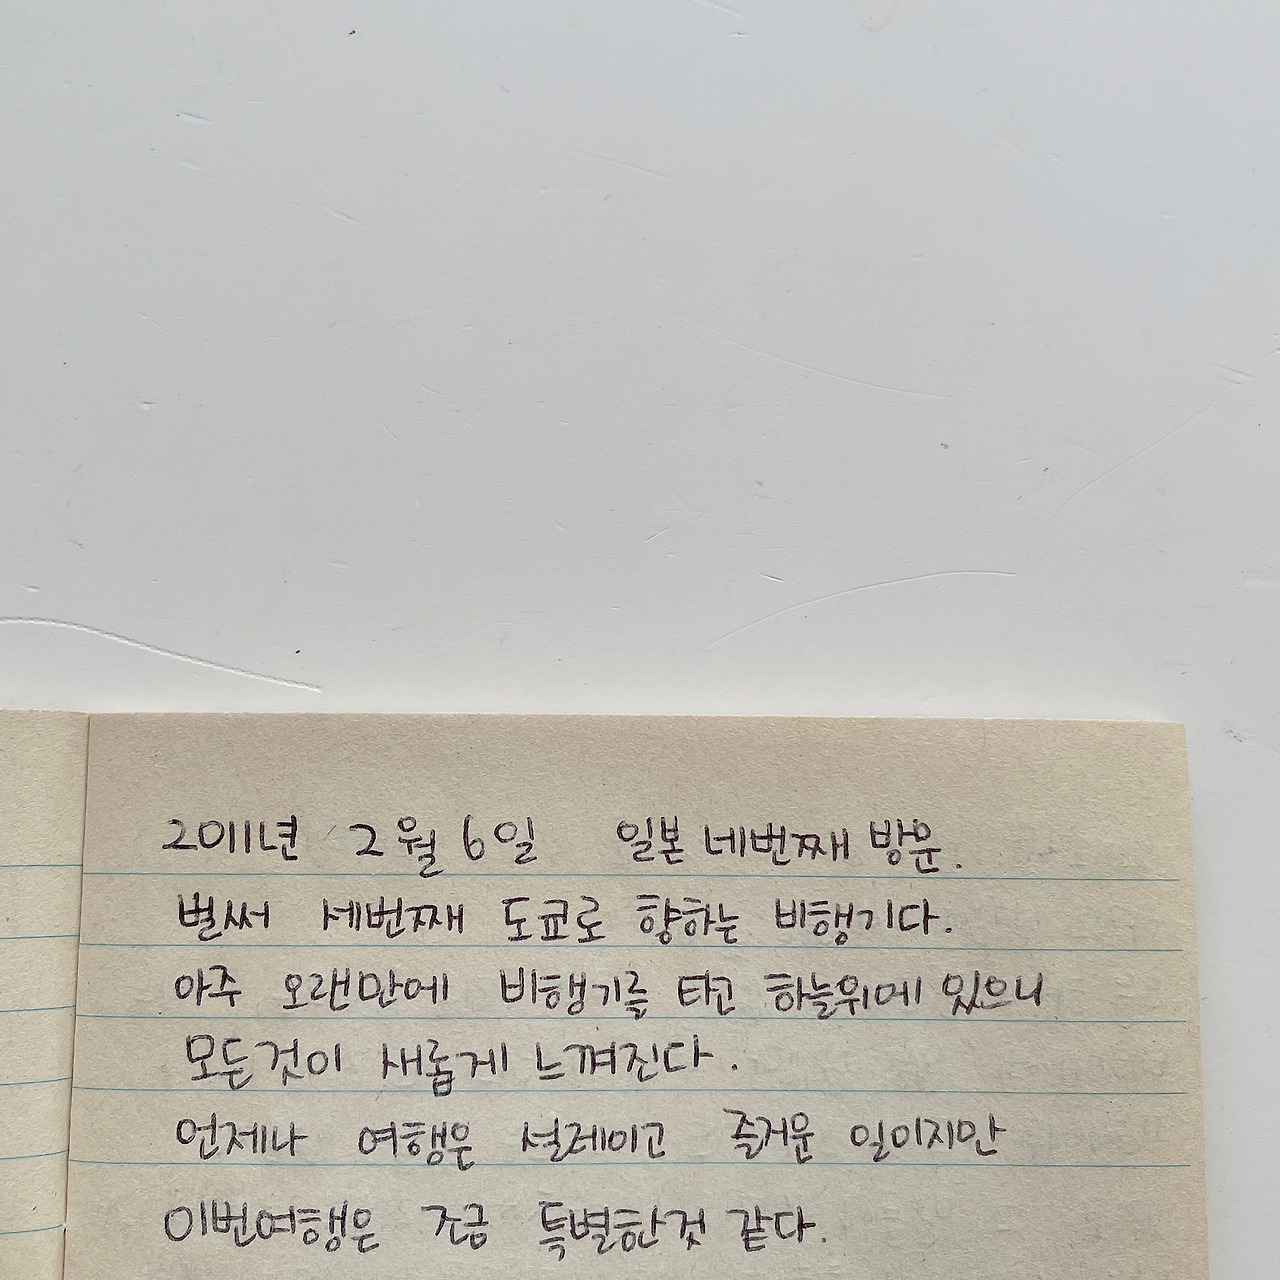 2011년 2월 6일 일본 네번째 방문.
벌써 세번째 도쿄로 향하는 비행기다.
아주 오랜만에 비행기를 타고 하늘위에 있으니
모든것이 새롭게 느껴진다.
언제나 여행은 설레이고 즐거운 일이지만
이번여행은 조금 특별한것 같다.